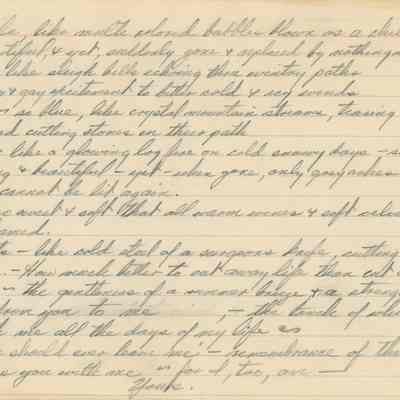 like multi colored bubbles blown as a child
& yet, suddenly gone & replaced by nothingness
like sleigh bells echoing thru wintry paths
& gay excitement to bitter cold & icy winds
so blue, like crystal mountain streams, teasing
cutting stones in their path
like a glowing log fire on cold snowy days -
& beautiful - yet - when gone, only gray ashes
cannot be lit again.
sweet & soft that all warm wines & soft
- like cold steel of a surgeons knife, cutting
- How much better to eat away life than cut
the gentleness of a summer breeze & a strength
from you to me , - the touch of
me all the days of my life
should ever leave me - remembrance of
you with me for I, too, am -
Yours.